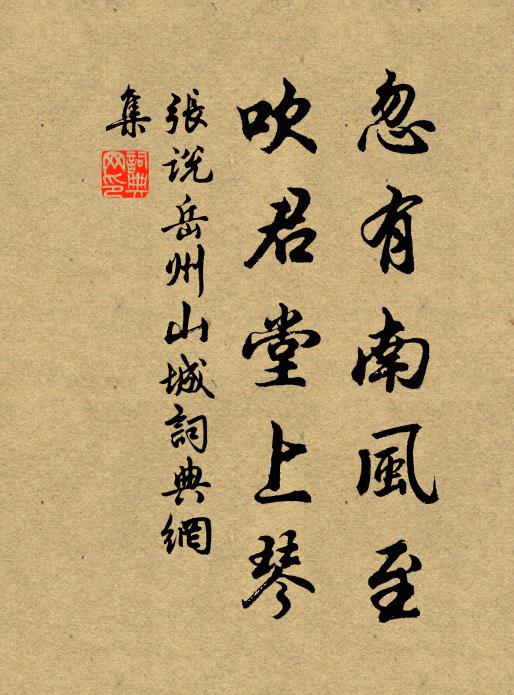 忽有南風至
吹君堂上琴
張說岳州山城詞典網
集
詞典
网印